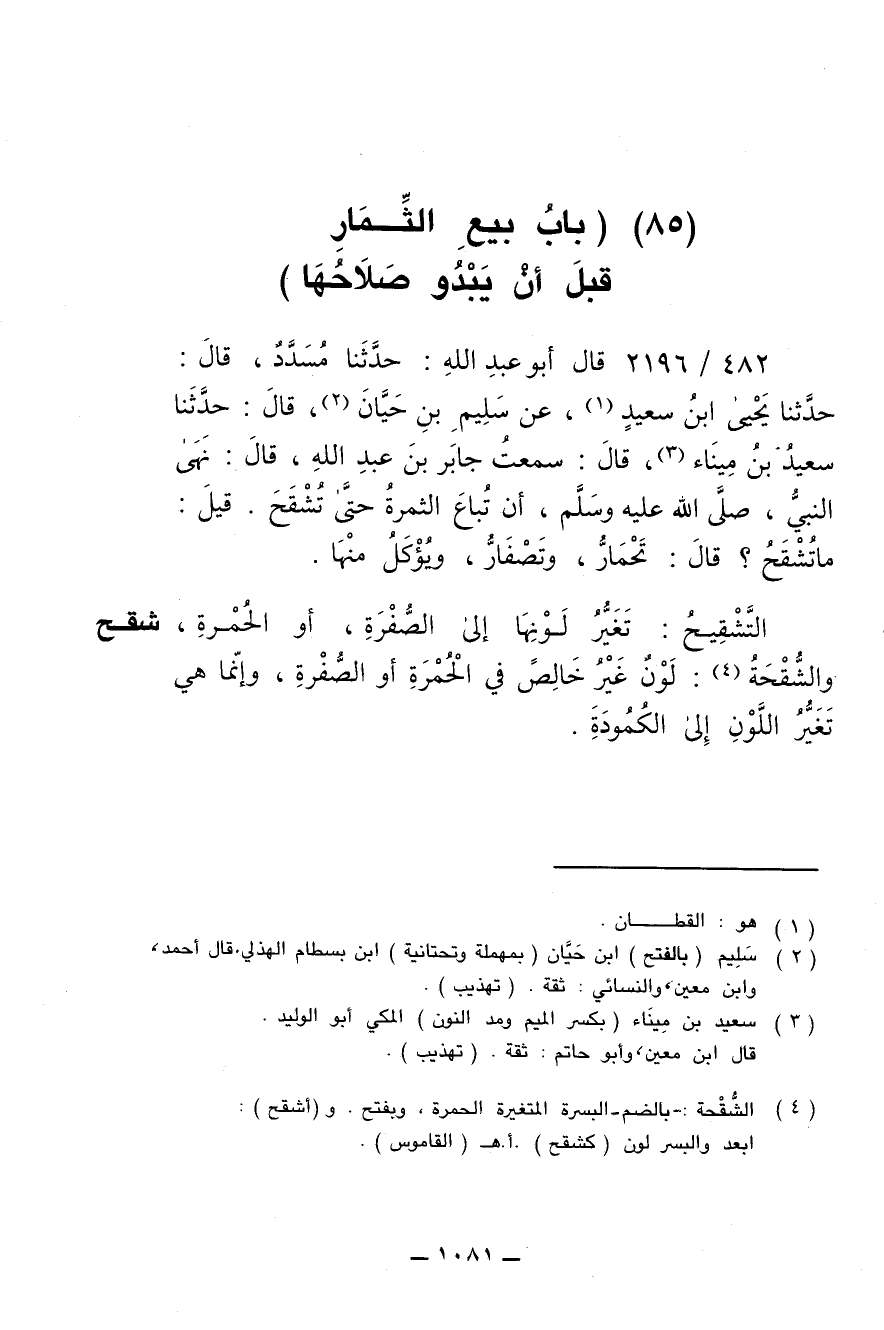 (٨٥) ( بابُ بيعِ الثِّـــمَارِ
قبلَ أنْ يَبْدُو صَلَاحُهَا )
٤٨٢ / ٢١٩٦ قال أبو عبدِ اللهِ : حدَّثَنا مُسَدَّدٌ ، قالَ :
حدَّثنا يَحْيىٰ ابنُ سعيدٍ (١) ، عن سَلِيمِ بنِ حَيَّانَ (٢)، قالَ : حدَّثَنا
سعيدُ بنُ مِينَاء (٣)، قالَ : سمعتُ جابَر بنَ عبدِ اللهِ ، قالَ : نَهَىٰ
النبيُّ ، صلَّى الله عليه وسَلَّم ، أن تُباعَ الثمرةُ حتَّىٰ تُشْقَحَ . قيلَ :
ماتُشْقَحُ ؟ قالَ : تَحْمَارُّ ، وتَصْفَارُّ ، ويُؤْكَلُ منْهَا .
التَّشْقِيحُ : تَغَيُّرُ لَـوْنِهَا إلىٰ الصُّفْرَةِ ، أو الحُمْـرةِ ، شقـح
والشُّقْحَةُ (٤) : لَوْنٌ غَيْرُ خَالِصٍ في الْحُمْرَةِ أو الصُّفْرةِ ، وإنّما هي
تَغَيُّرُ اللَّوْنِ إِلىٰ الكُمُودَةِ .
(١) هو : القطـــــان .
(٢) سَلِيم ( بالفتح ) ابن حَيَّان ( بمهملة وتحتانية ) ابن بسطام الهذلي،قال أحمد،
وابن معين،والنسائي : ثقة . ( تهذيب ) .
(٣) سعيد بن مِينَاء ( بكسر الميم ومد النون ) المكي أبو الوليد .
قال ابن معين،وأبو حاتم : ثقة . ( تهذيب ) .
(٤) الشُّقْحة :-بالضم-البسرة المتغيرة الحمرة ، ويفتح . و (أشقح ) :
ابعد والبسر لون ( كشقح ) .أ.هـ ( القاموس ) .
— ١٠٨١ —